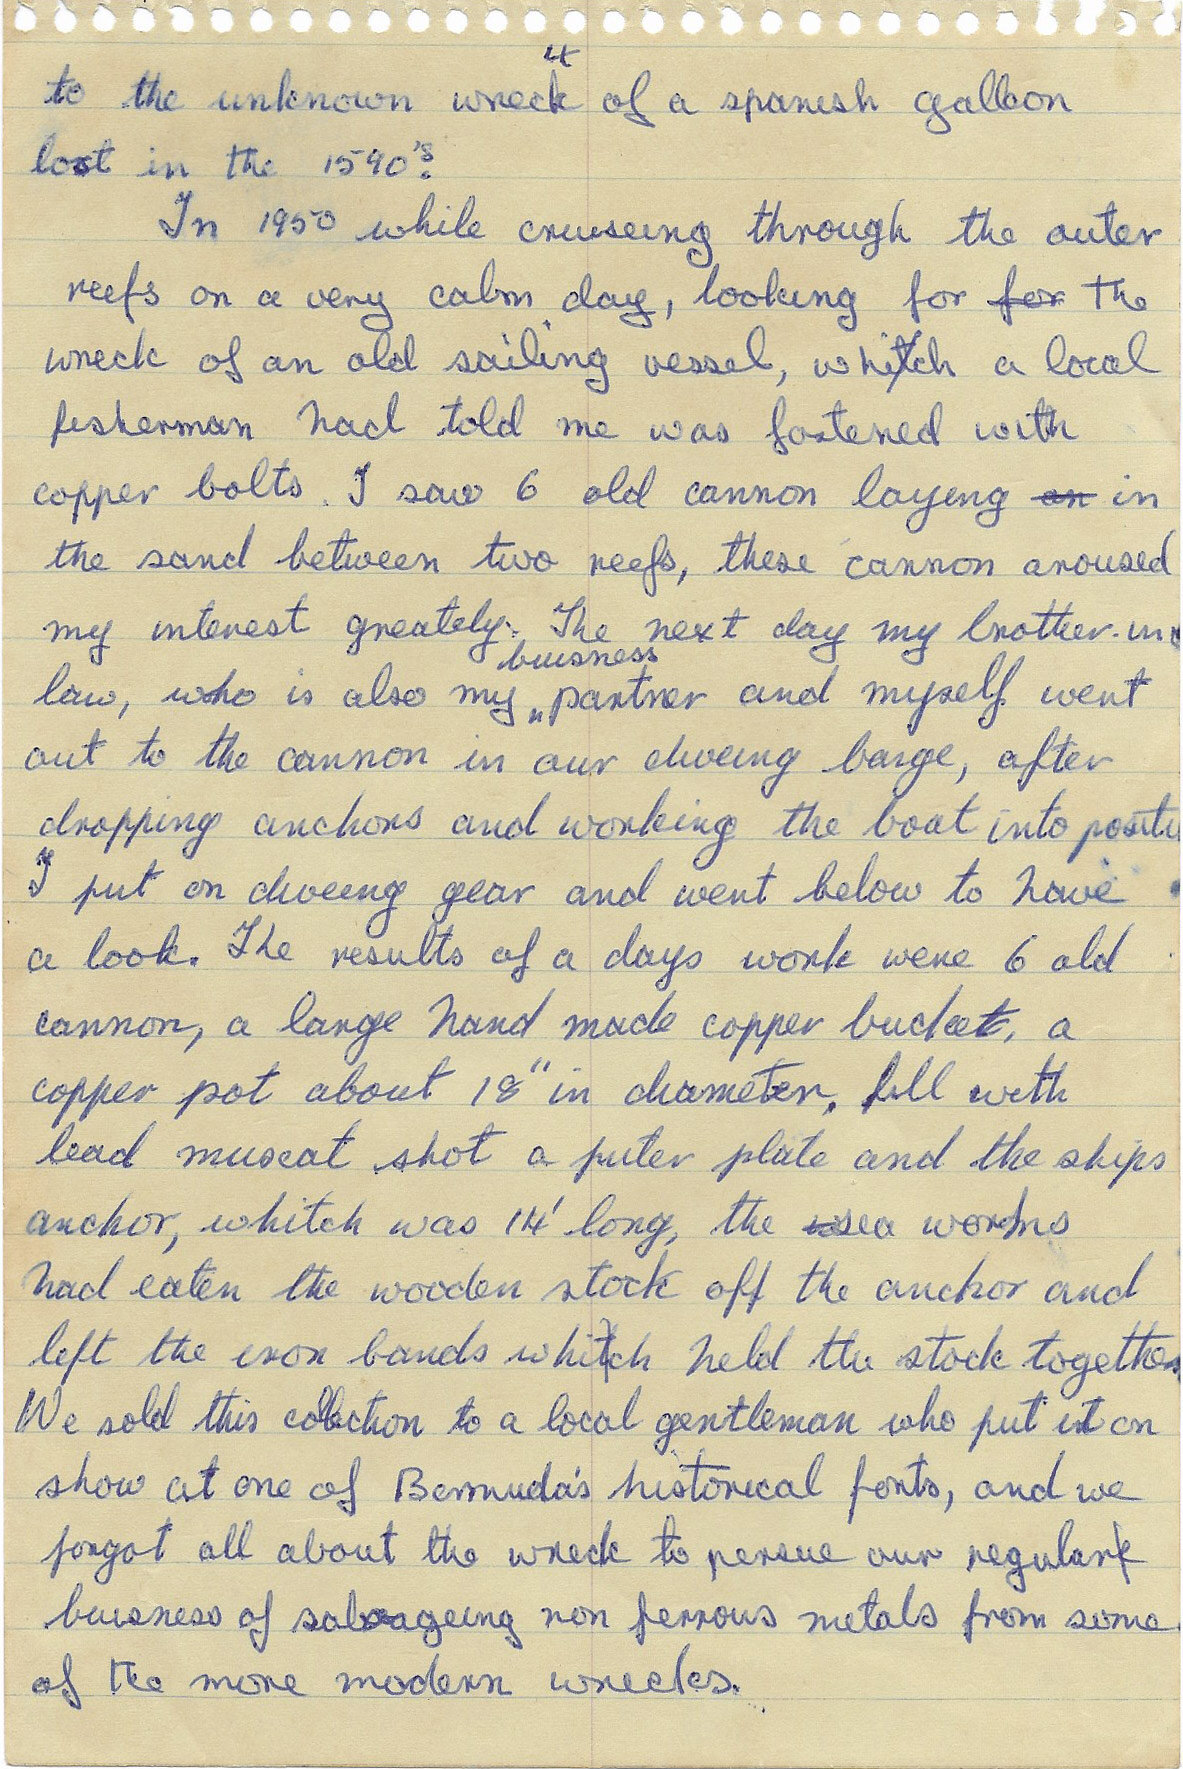 4
to the unknown wreck of a spanish galleon
lost in the 1590's.
In 1950 while cruiseing through the outer
reefs on a very calm day, looking for for the
wreck of an old sailing vessel, whitch a local
fisherman had told me was fastened with
copper bolts. I saw 6 old cannon laying on in
the sand between two reefs, these cannon aroused
my interest greately. The next day my brother-in
buisness
law, who is also my " partner and myself went
out to the cannon in our diveing barge, after
dropping anchors and working the boat into positi
I put on diveing gear and went below to have
a look. The results of a days work were 6 old
cannon, a large hand made copper bucket, a
copper pot about 18" in diameter, full with
lead muscat shot a puter plate and the ships
anchor, whitch was 14' long, the sea worms
had eaten the wooden stock off the anchor and
left the iron bands whitch held the stock together
We sold this collection to a local gentleman who put it on
show at one of Bermuda's historical forts, and we
forgot all about the wreck to persue our regular
buisness of salvageing non ferrous metals from some
of the more modern wrecks.